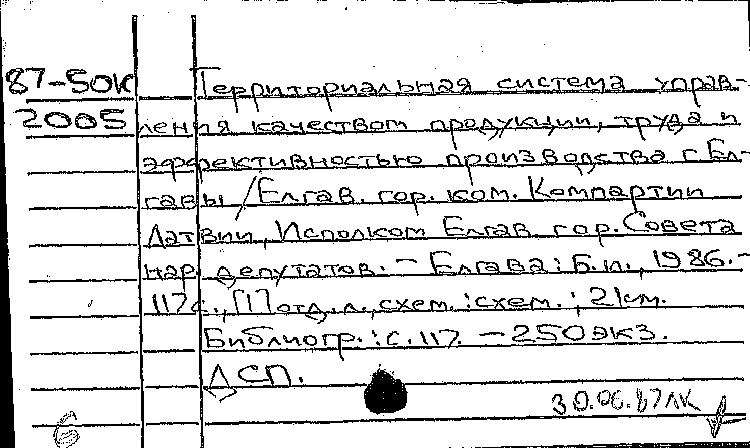 87-50К Территориальная система управ-
2005 ления качеством продукции, труда и
эффективностью производства г Ел-
гавы / Елгав. гор. ком. Компартии
Латвии, Исполком Елгав. гор. Совета
нар. депутатов. – Елгава : Б.и., 1986. –
117с., [1] отд. л., схем. : схем. ; 21см.
Библиогр. : с. 117. – 250экз.
ДСП.
30.06.87ЛК
6